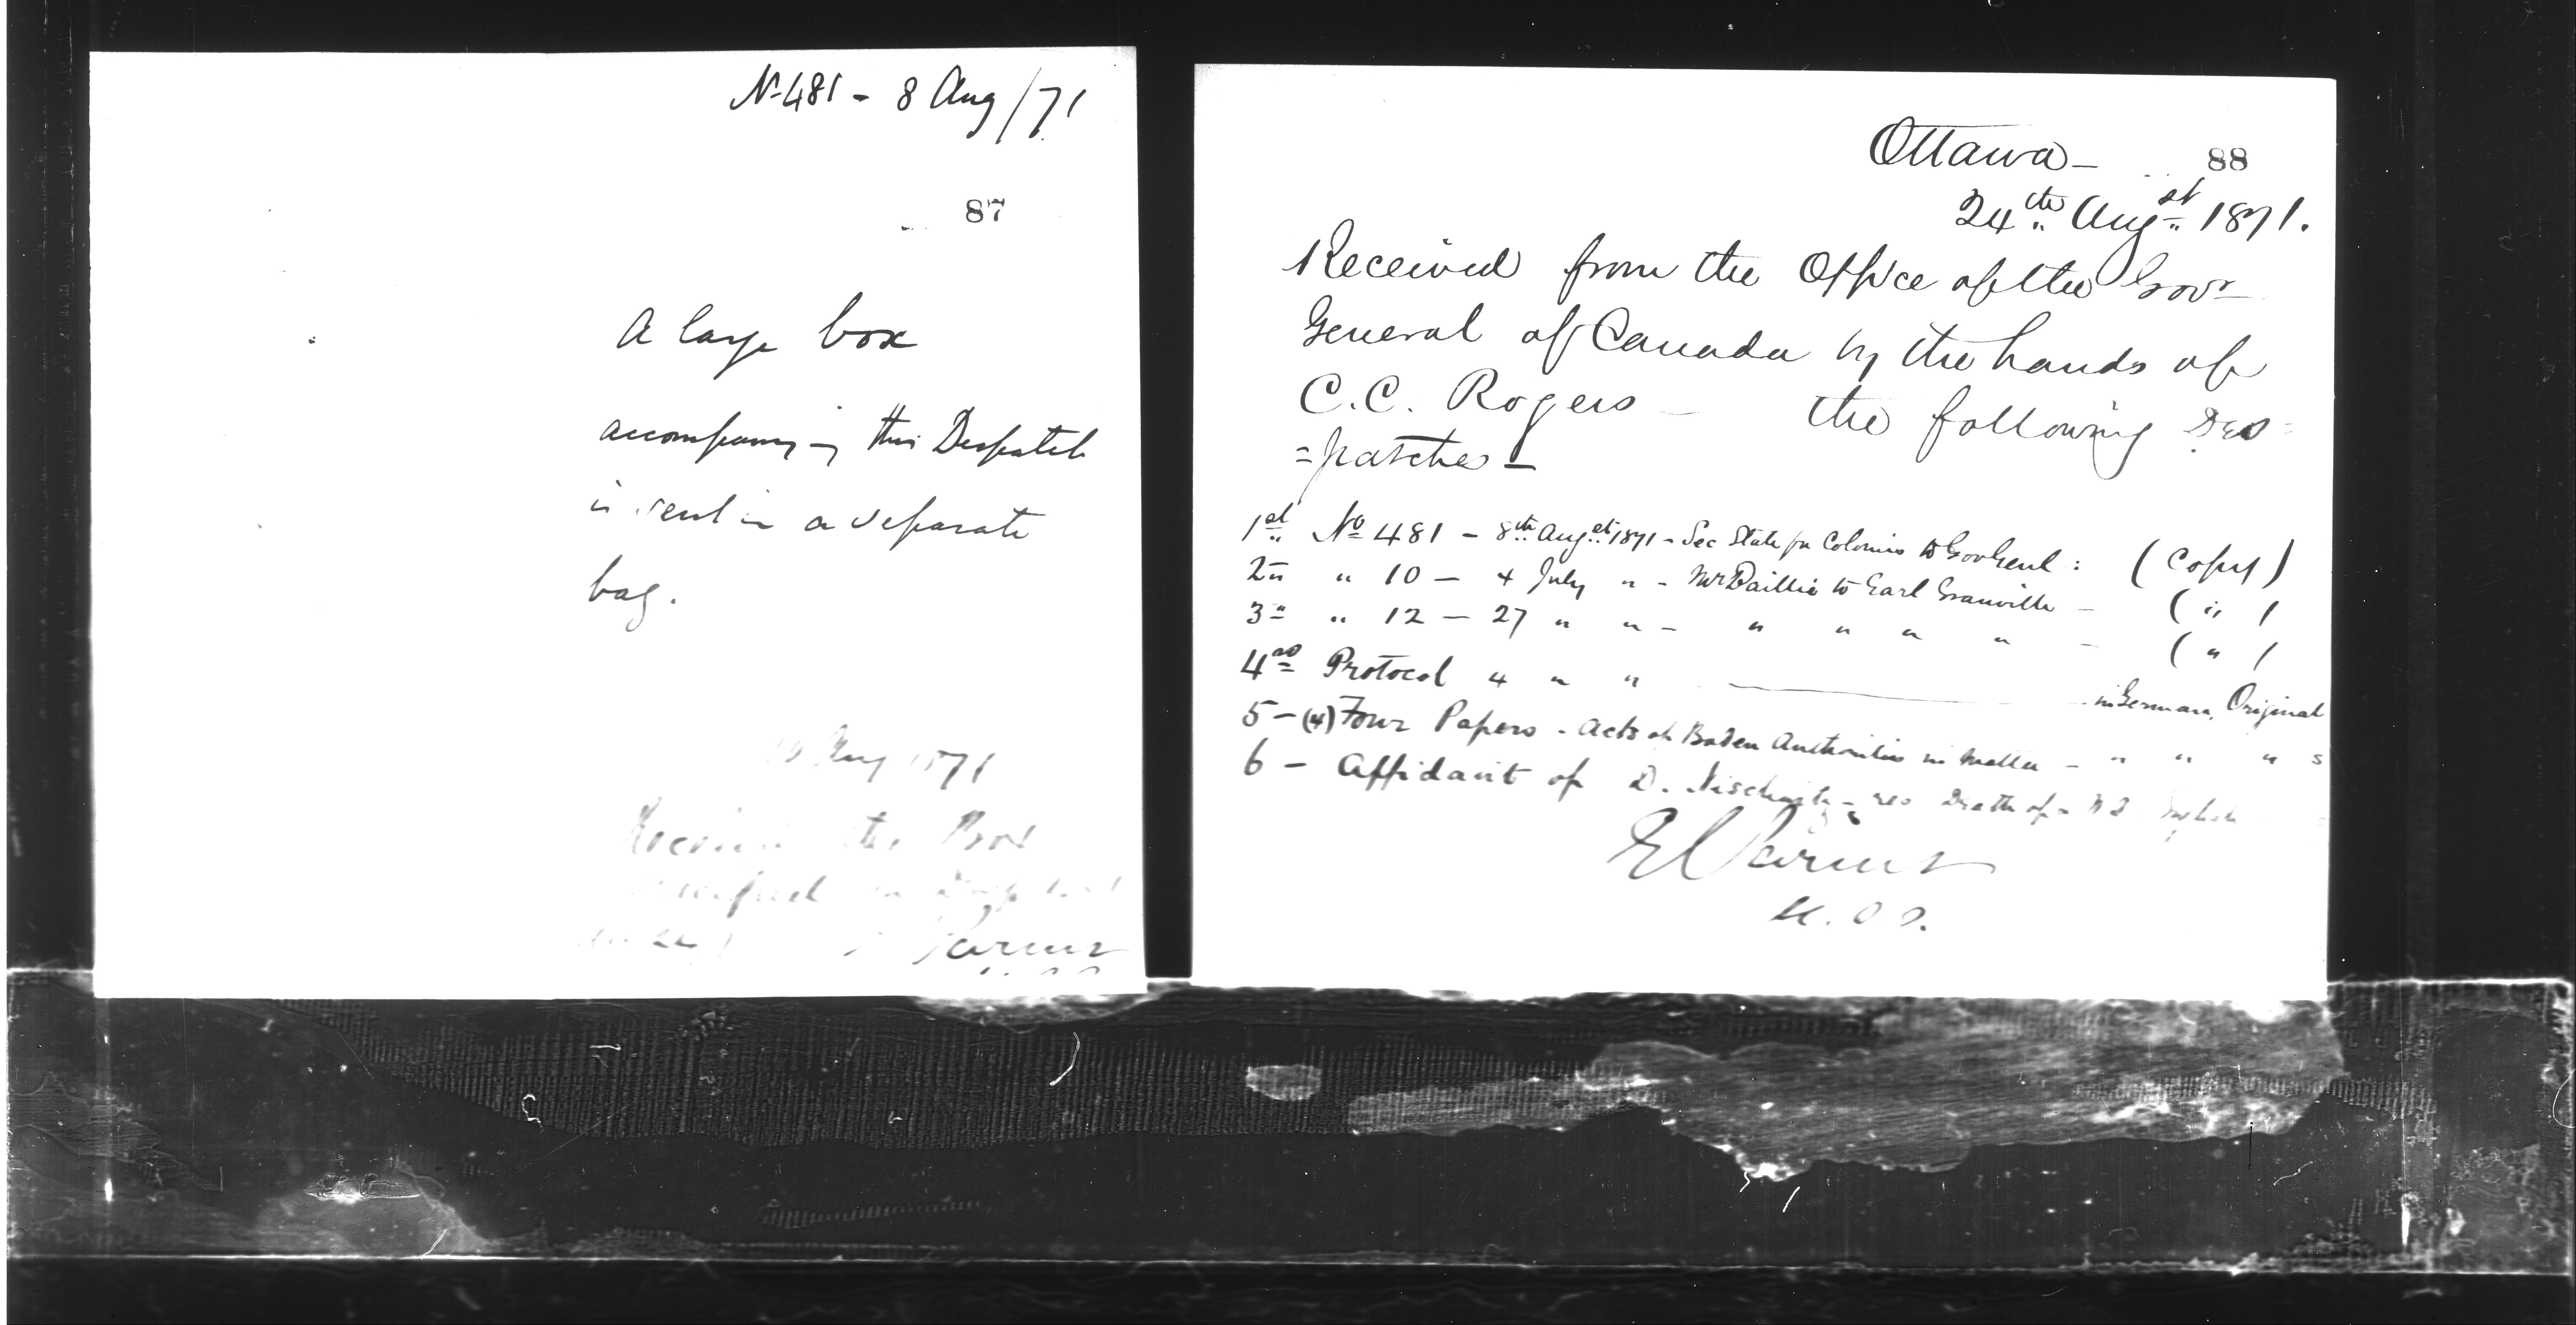 No 481 - 8 Aug/71
87
A large box
accompanying this Despatch
is sent in a separate
bag.
Aug 1871
the Box
Ottawa -
88
24th Augst 1871.
Received from the Office of the Govr
General of Canada by the hands of
C.C. Rogers - the following Des=
=patches -
1st No 481 - 8th Augst 1871 - Sec State for Colonies to Gov Genl : (Copy)
2n " 10 - 4 July " - Mr Baillie to Earl Granville - ( " )
3" " 12 - 27 " " - " " " " - ( " )
4 Protocol 4 " " in German, Original
5 - (4) Four Papers - Acts of Baden Authorities in Matter - " " " s
6 - Affidavit of D. - Death of -